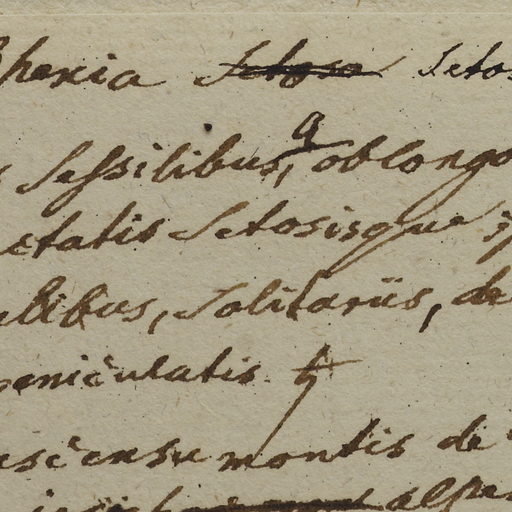 hexia Setosa Setos
a
sessilibus, oblongo
etatis Setosisque
libus, Solitariis, de
geniculatis ♃
ascensu montis de
alpe